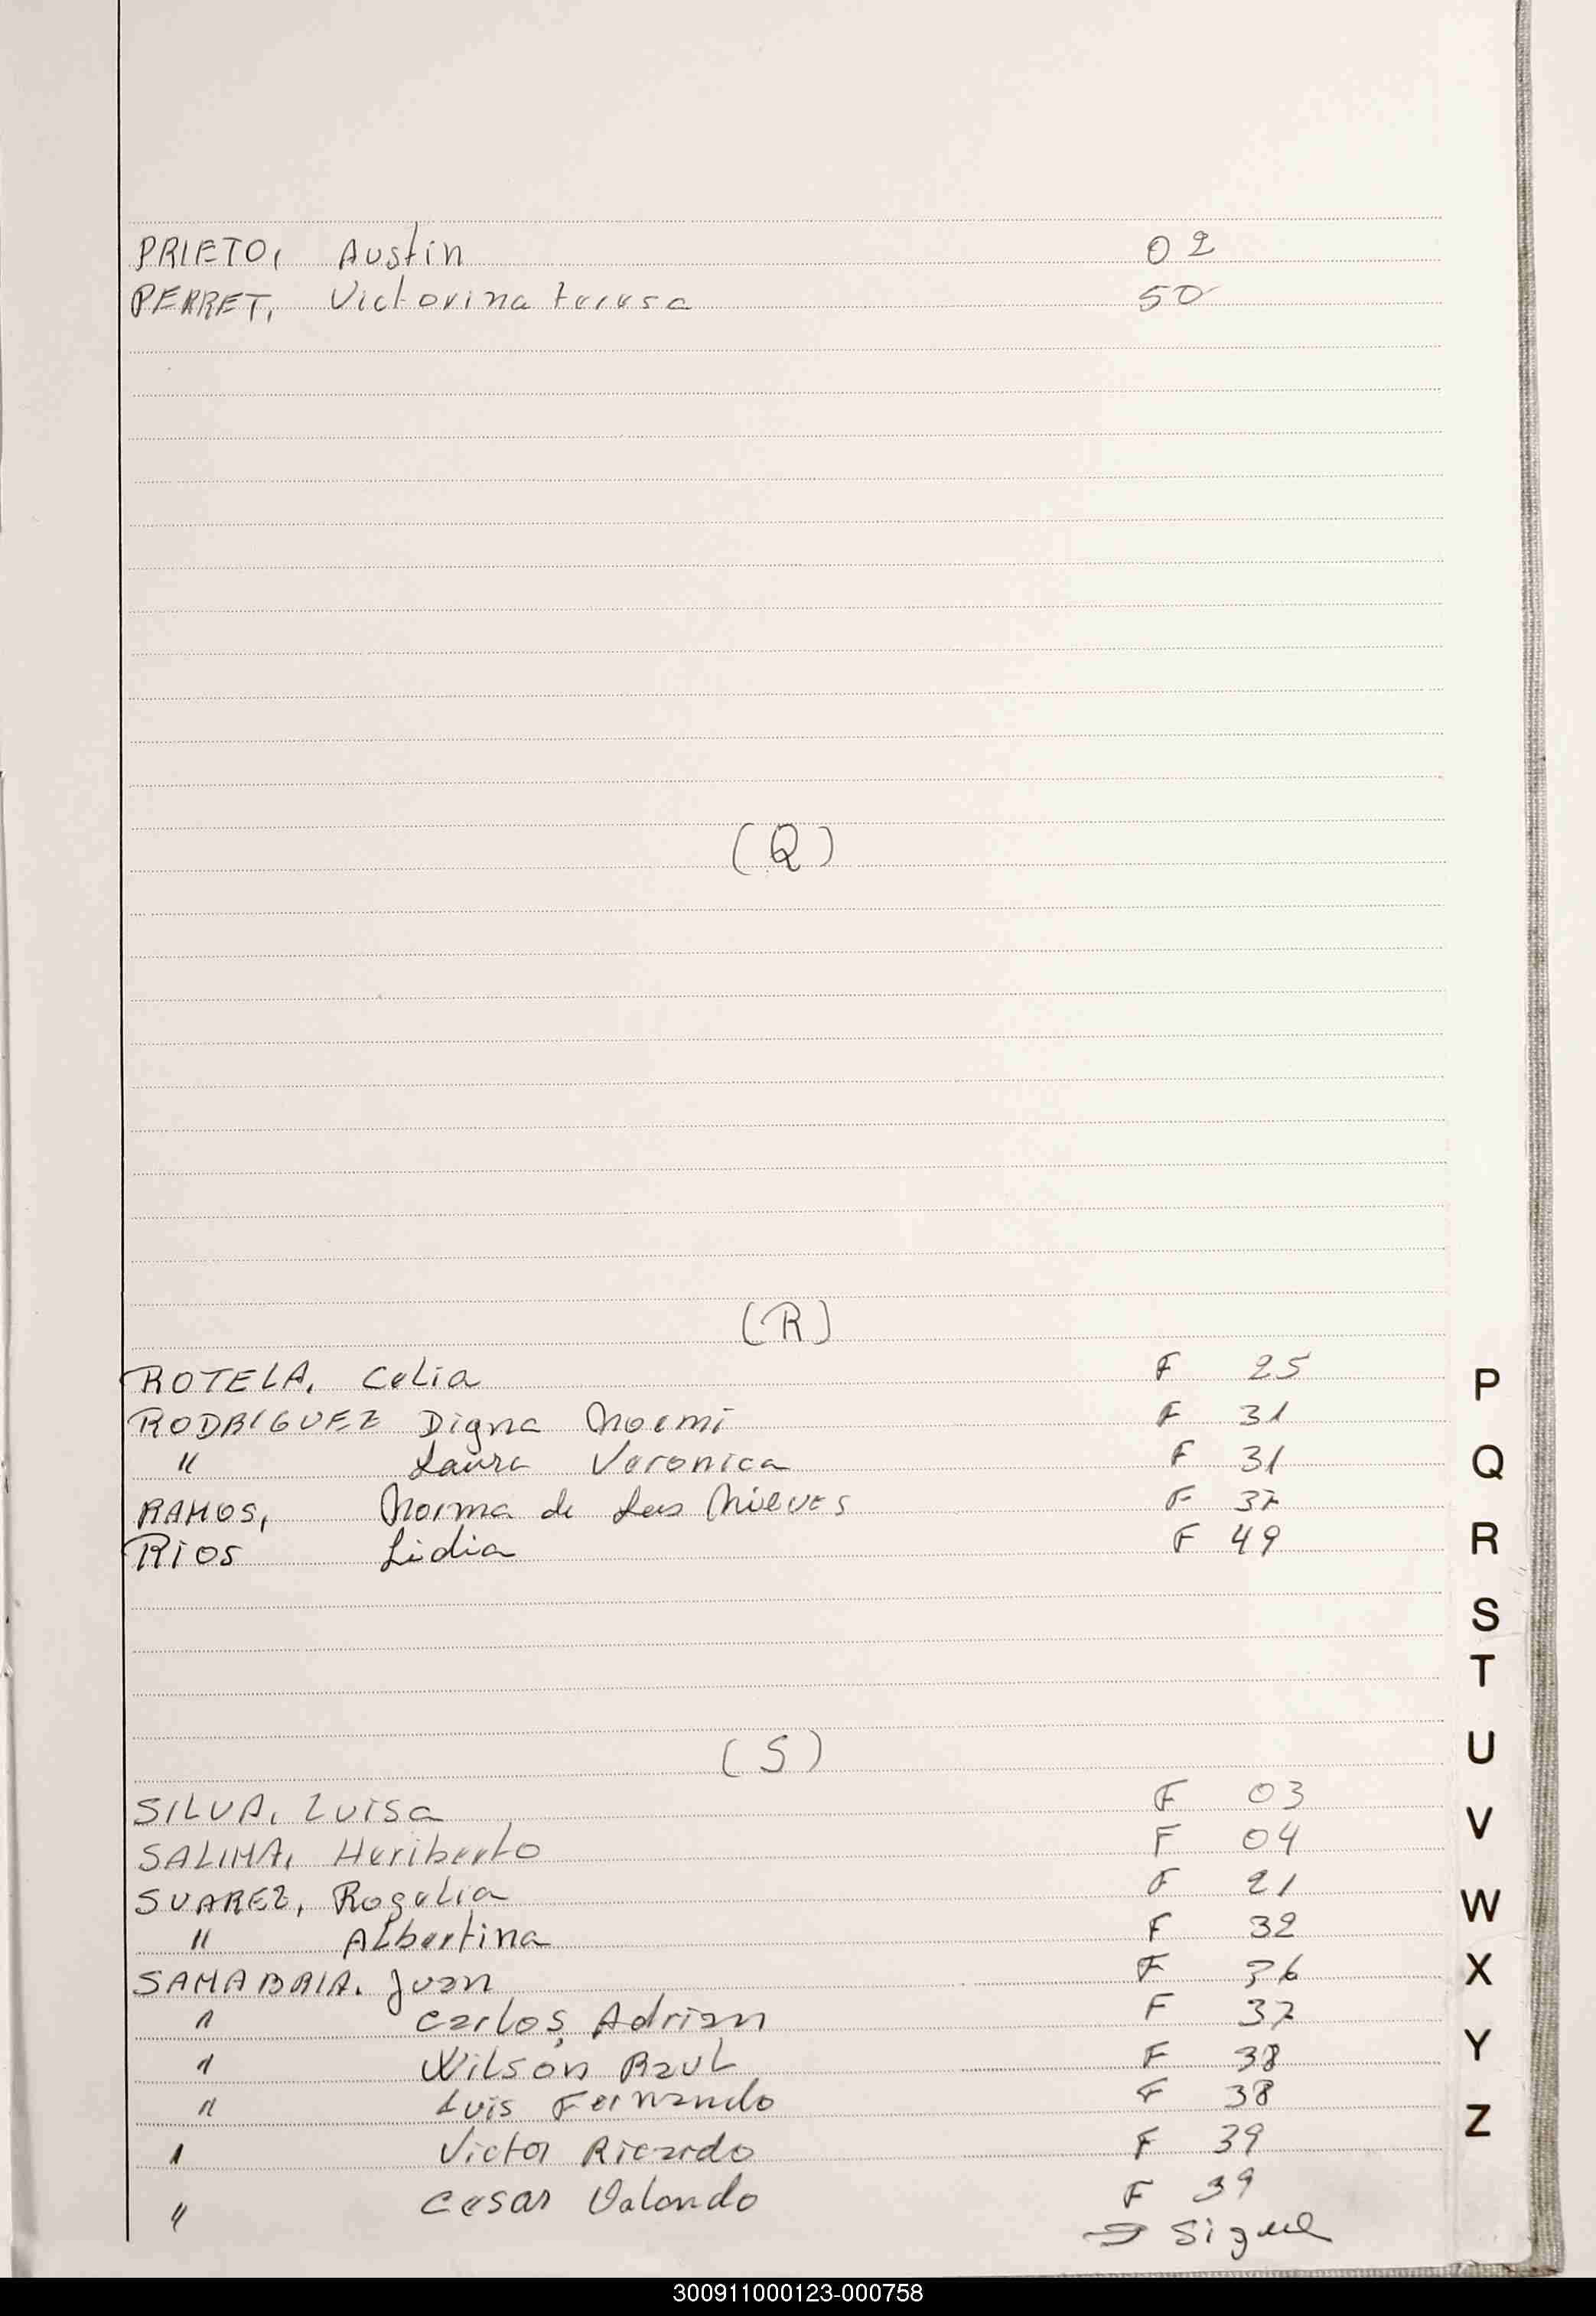 PRIETO, Austin 02
PERRET, Victorina teresa 50
(Q)
(R)
ROTELA, Celia F 25
RODRIGUEZ Digna Noemi F 31
" Laura Veronica F 31
RAMOS, Norma de Las Nieves F 37
RIOS Lidia F 49
(S)
SILVA, Luisa F 03
SALINA, Heriberto F 04
SUAREZ, Rogelia F 21
" Albertina F 32
SAMABRIA. Juan F 36
" Carlos Adrian F 37
" Wilson Raul F 38
" Luis Fernando F 38
" Victor Ricardo F 39
" Cesar Valando F 39
→ Sigue
P
Q
R
S
T
U
V
W
X
Y
Z
300911000123-000758